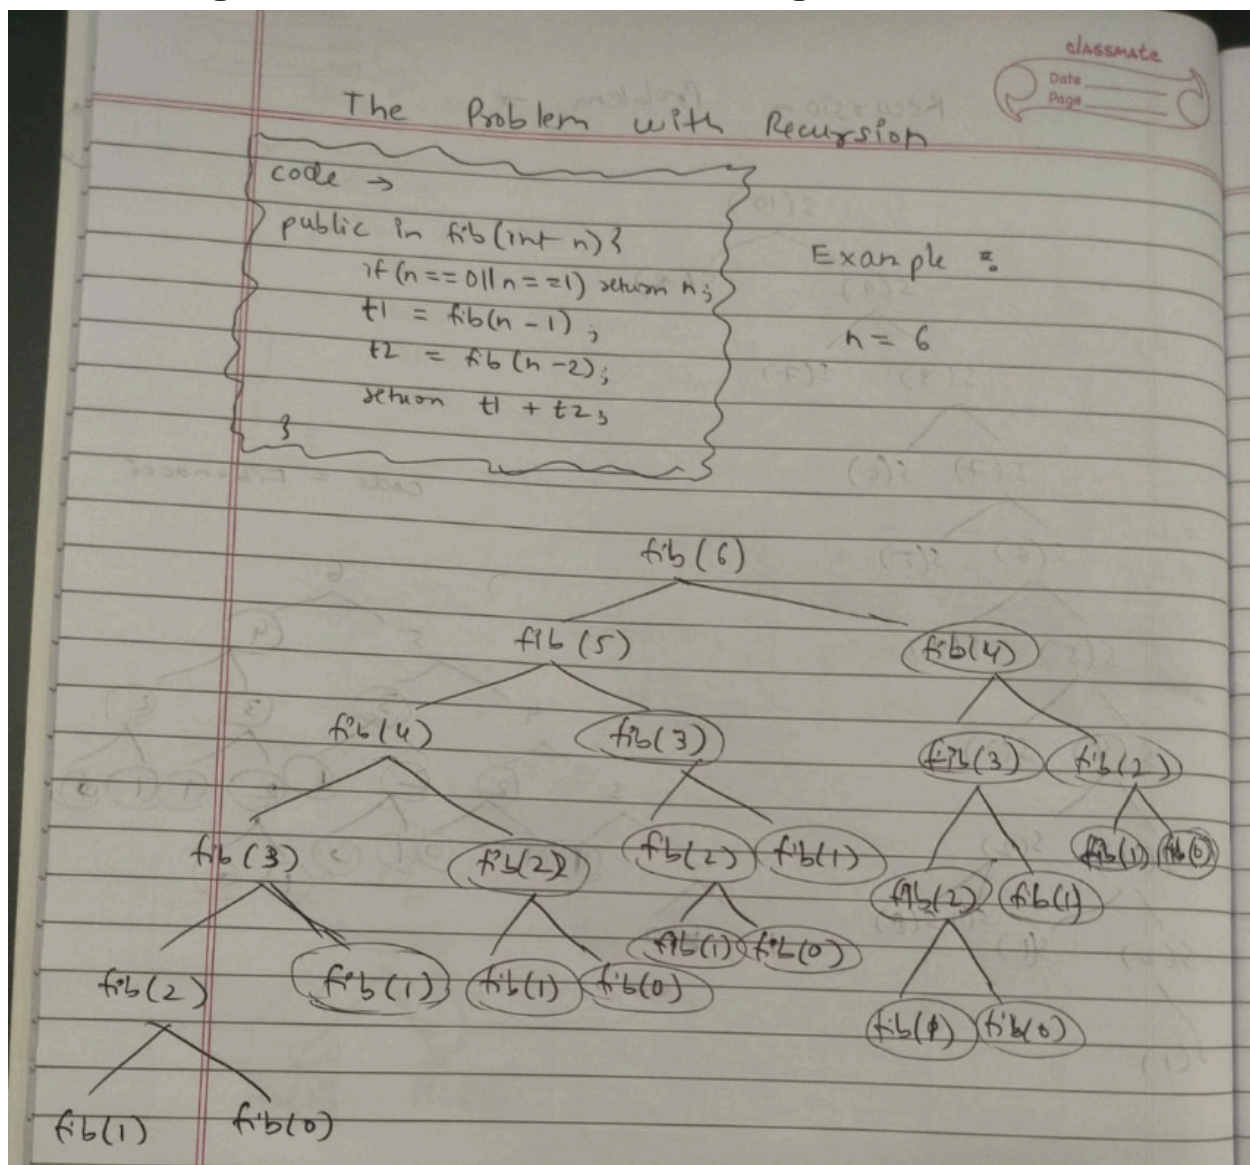 classmate
Date
Page
The Problem with Recursion
code →
public in fib(int n){
if (n==0||n==1) return n;
t1 = fib(n-1);
t2 = fib(n-2);
return t1 + t2;
}
Example :
n = 6
fib(6)
fib(5) fib(4)
fib(4) fib(3) fib(3) fib(2)
fib(3) fib(2) fib(2) fib(1) fib(2) fib(1) fib(1) fib(0)
fib(2) fib(1) fib(1) fib(0) fib(1) fib(0) fib(1) fib(0)
fib(1) fib(0)